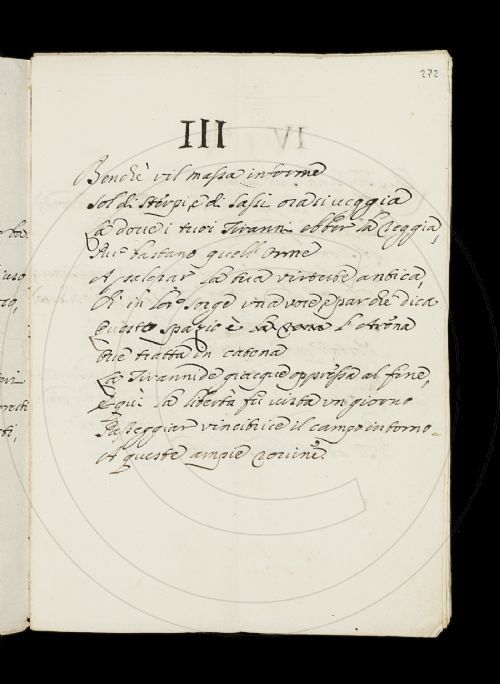 272
III
Benche vil massa informe
sol di sterpi, e di sassi ora si veggia
Là dove i tuoi Tiranni ebber la reggia,
bastano quell' orme
A palesar la tua virtute antica,
Ch' in lor sorge una voce, e par che dica
Questo spazio è la
tratta in catena
La Tirannide giacque oppressa al fine,
E quì la libertà fù vista un giorno
Passeggiar vincitrice il campo intorno
A queste ampie rovine.